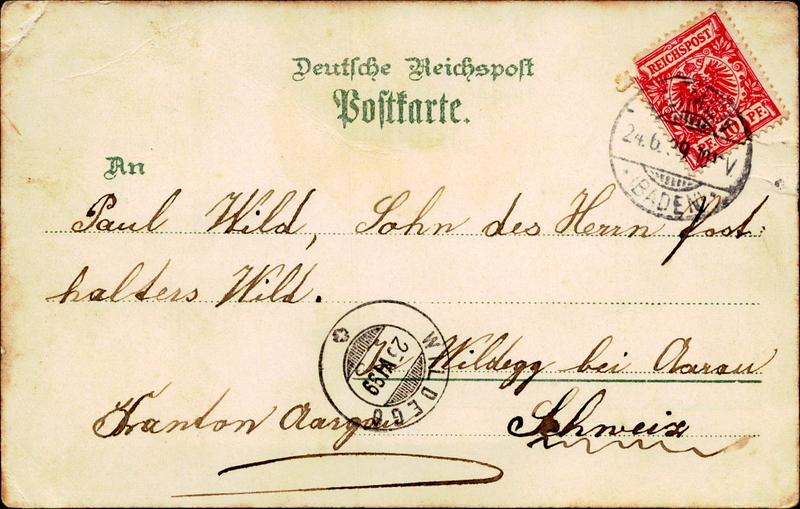 Deutsche Reichspost
Postkarte.
REICHSPOST
10 PF
24.6.99
(BADEN)
An
Paul Wild, Sohn des Herrn Post-
halters Wild.
WILDEGG
25 VI 99
In Wildegg bei Aarau
Kanton Aargau
Schweiz